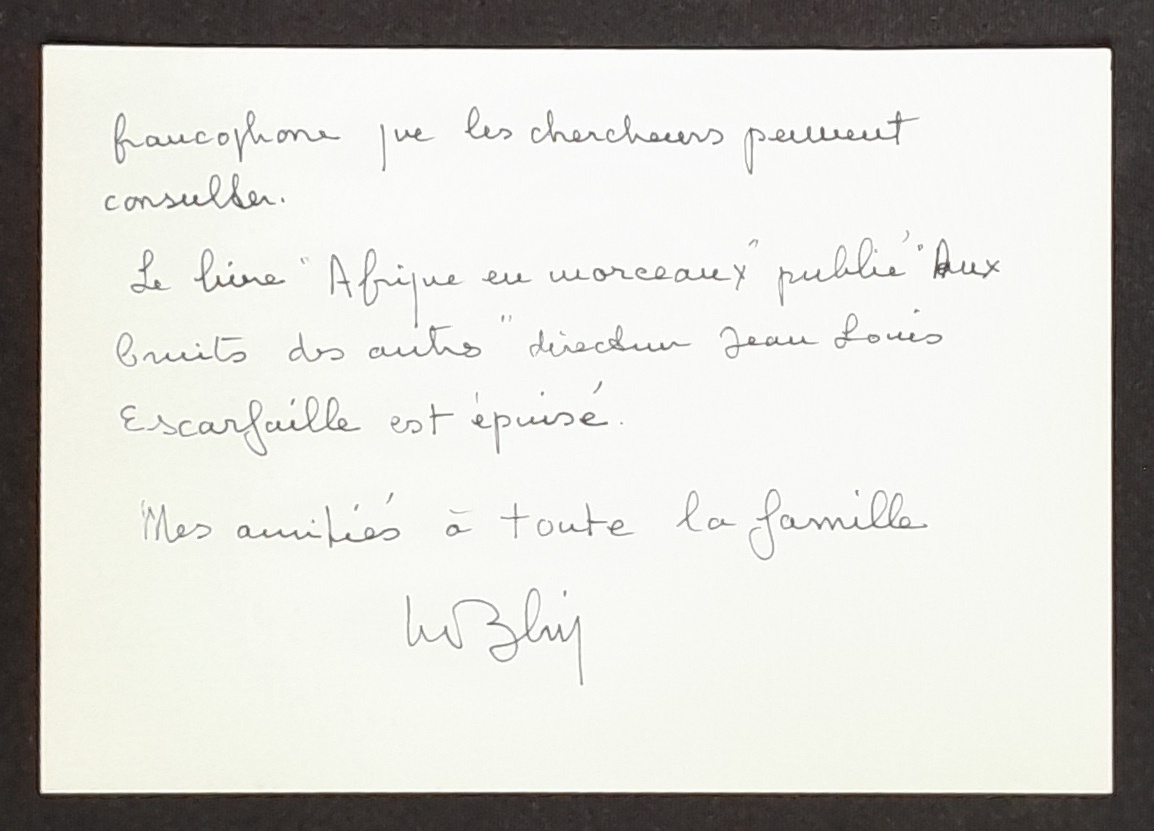 francophone que les chercheurs peuvent
consulter.
Le livre "Afrique en morceaux" publié "Aux
bruits des autres" directeur Jean Louis
Escarfaille est épuisé.
Mes amitiés à toute la famille